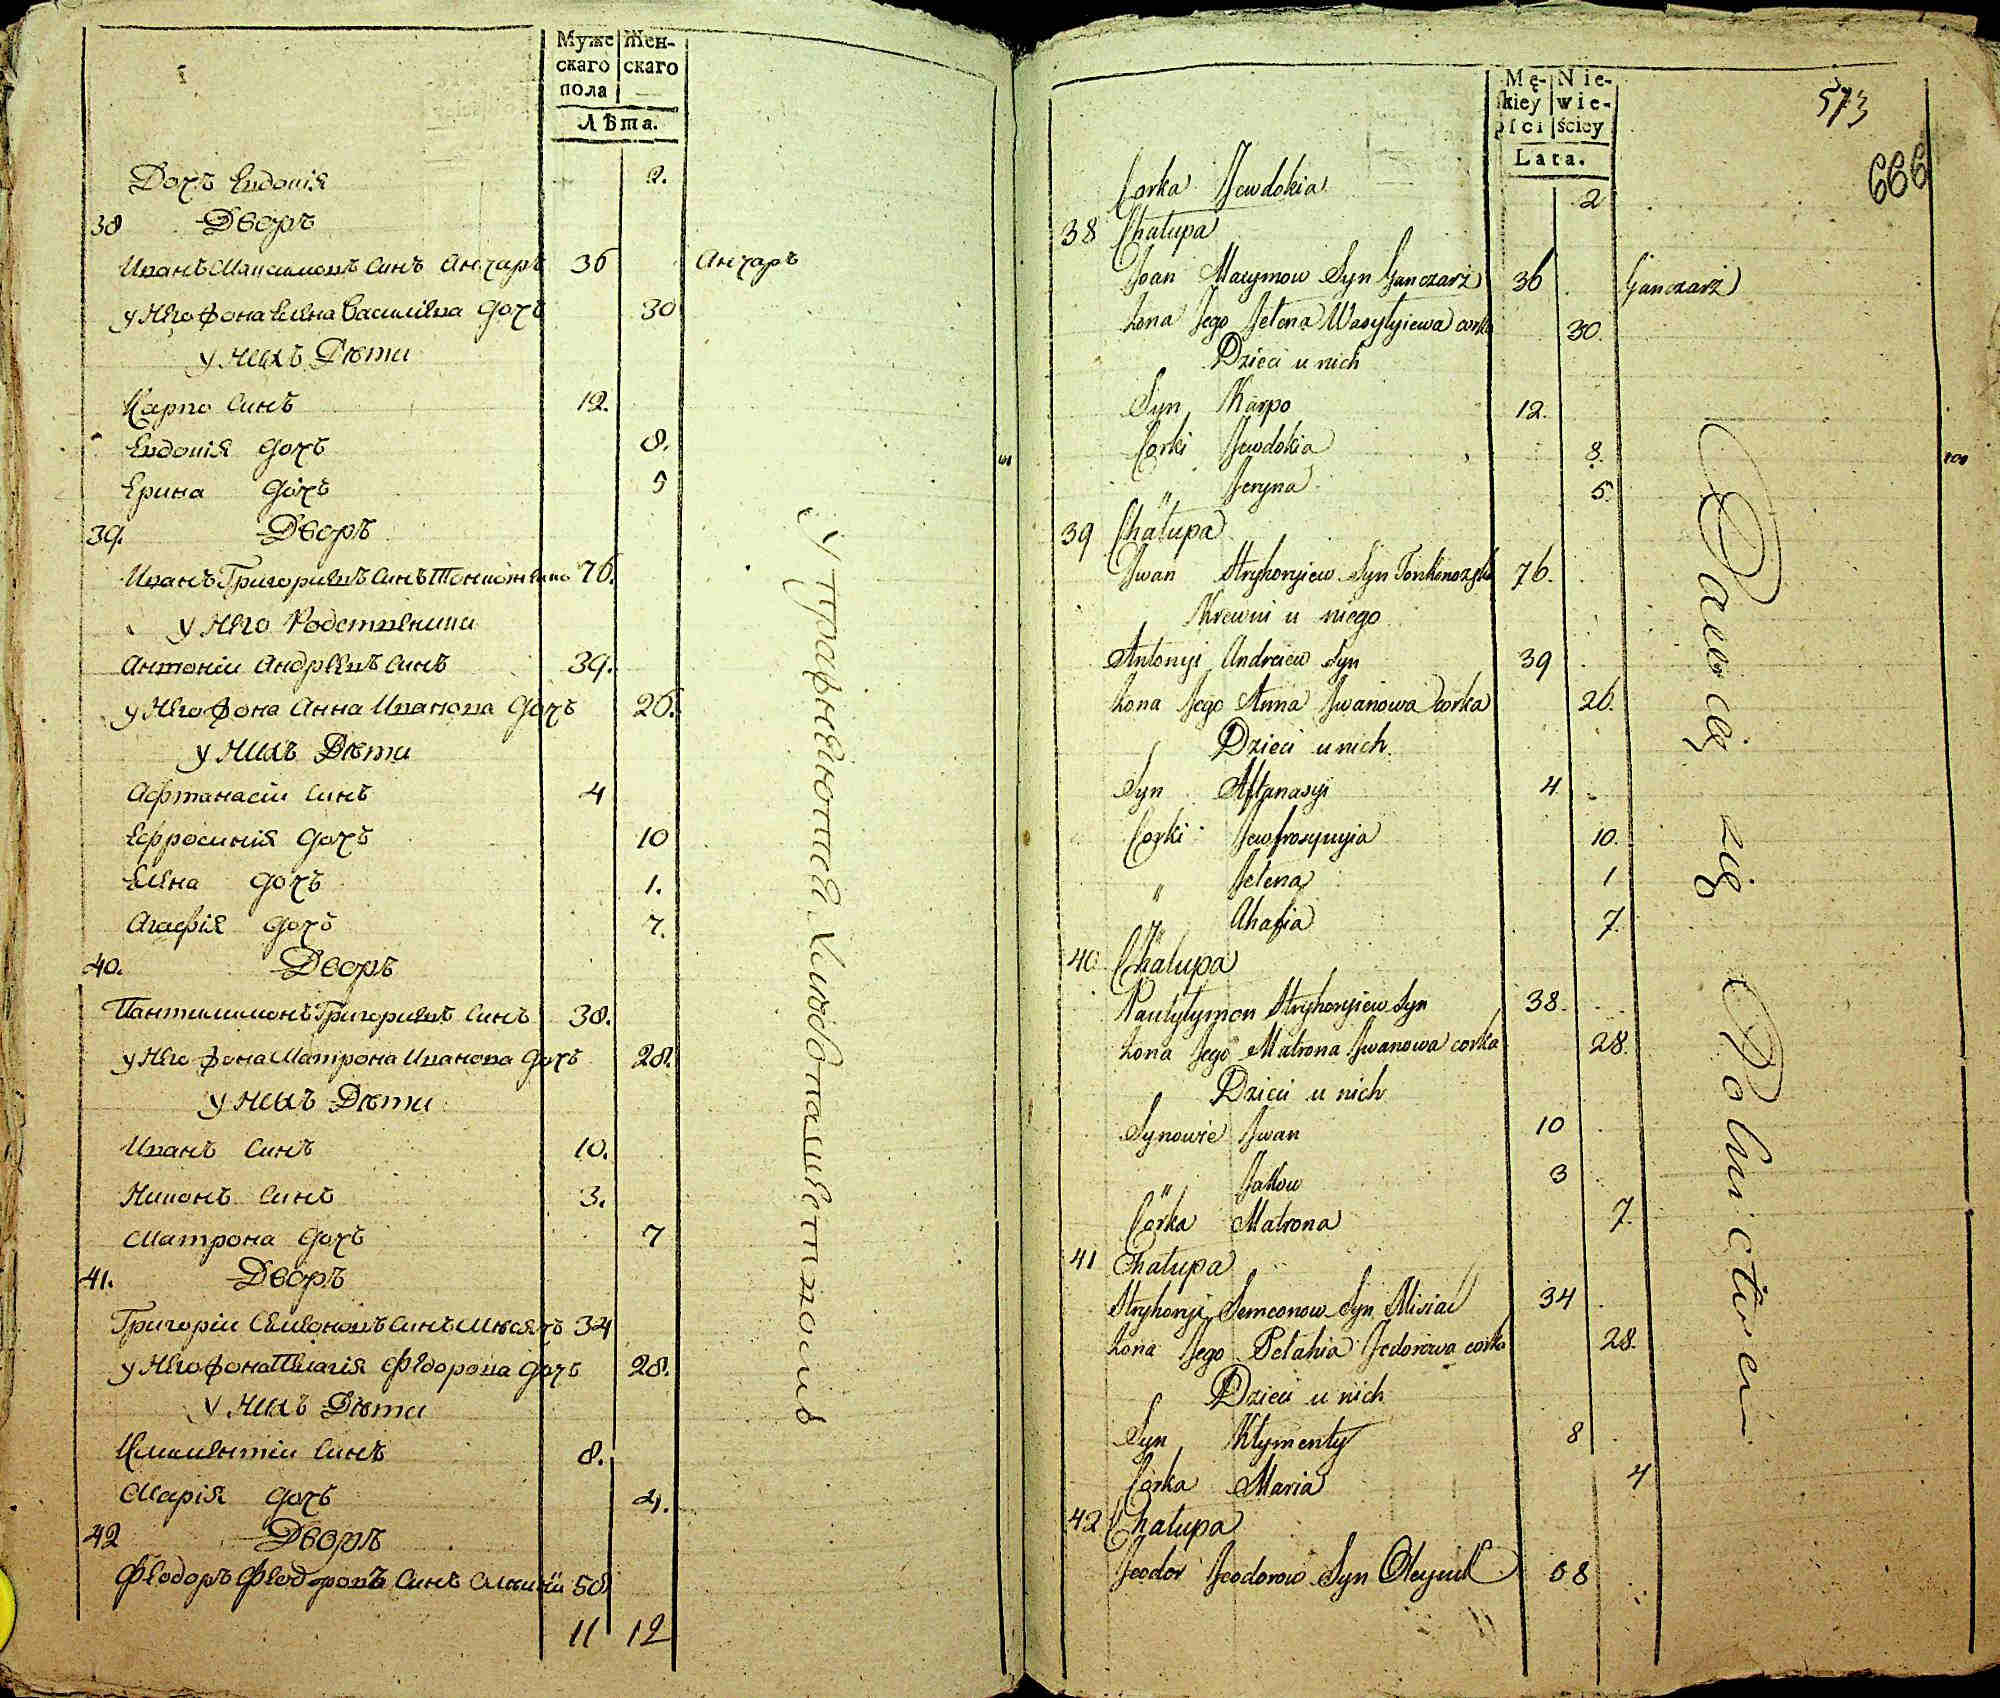 Муже Жен-
скаго скаго
пола
Лѣта.
Дочъ Евдокія 2.
38 Дворъ
Иванъ Максимовъ Синъ Анчаръ 36 Анчаръ
у Него жона Елена Василіева дочъ 30
у Нихъ Дѣти
Карпо Синъ 12.
Евдокія дочъ 8.
Ерина дочъ 5
39. Дворъ
Иванъ Григориевъ Синъ 76.
у Него Родственики
Антоніи Андрѣевъ Синъ 39.
у Него жона Анна Иванова дочъ 26.
у Нихъ Дѣти
Афтанасіи Синъ 4
Ефросинія дочъ 10
Елена дочъ 1.
Агафія дочъ 7.
40. Дворъ
Пантилимонъ Григориевъ Синъ 38.
у Него жона Матрона Иванова дочъ 28.
у Нихъ Дѣти
Иванъ Синъ 10.
Синъ 3.
Матрона дочъ 7
41. Дворъ
Григоріи Семеоновъ Синъ Мѣсячъ 34
у Него жона Пелагія Федорова дочъ 28.
у Нихъ Дѣти
Климентіи Синъ 8.
Марія дочъ 4.
42 Дворъ
Феодоръ Феодоровъ Синъ 58
11 12
Упражняюшся хлѣбопашествомъ
Mę- Nie-
skiey wie-
płci ściey
Lata.
573
666
Corka Jewdokia 2
38 Chałupa
Joan Maxymow Syn Ganczarż 36 Ganczarż
żona Jego Jelena Wasylyiewa corka 30.
Dzieci u nich
Syn Karpo 12.
Corki Jewdokia 8.
" Jeryna 5.
39 Chałupa
Iwan Hryhoryiew Syn 76.
Krewni u niego
Antonyi Andreiew Syn 39
żona Jego Anna Jwanowa corka 26.
Dzieci u nich.
Syn Aftanasyi 4
Corki Jewfrosynyia 10.
" Jelena 1
" Ahafia 7.
40 Chałupa
Pantylymon Hryhoryiew Syn 38.
żona Jego Matrona Jwanowa corka 28.
Dzieci u nich
Synowie Jwan 10
" Jakow 3
Córka Matrona 7.
41 Chałupa
Hryhoryi Semeonow Syn Misiac 34
żona Jego Pełahia Fedorowa corka 28.
Dzieci u nich
Syn Klymenty 8
Córka Maria 4
42 Chałupa
Feodor Feodorow Syn Oleynik 58
Bawią się Rolnictwem